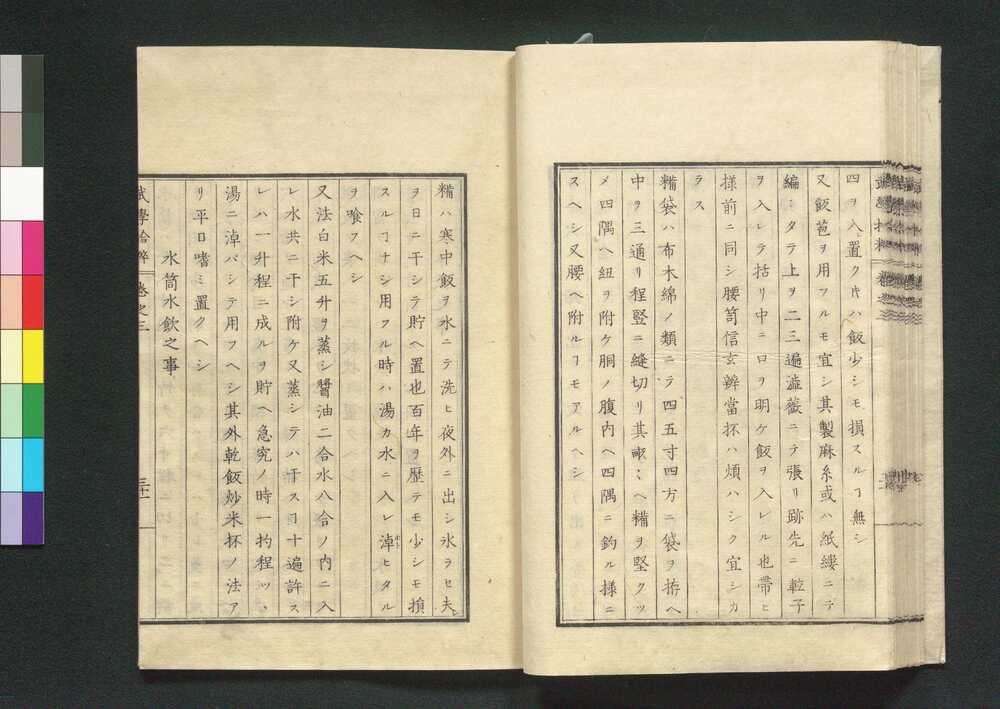 四ヲ入置ク𪜈ハ飯少シモ損スルヿ無シ
又飯苞ヲ用フルモ宜シ其製麻糸或ハ紙縷ニテ
編ミタラ上ヲ二三遍澁薐ニテ張リ跡先ニ乾子
ヲ入レテ括リ中ニロヲ明ケ飯ヲ入レル也帶ヒ
様前ニ同シ腰笥信玄辨當抔ハ煩ハシク宜シカ
ラス
糒袋ハ布木綿ノ類ニラ四五寸四方ニ袋ヲ拵ヘ
中ヲ三通リ程竪ニ縫切リ其畞〻ヘ糒ヲ堅クツ
メ四隅ヘ紐ヲ附ケ胴ノ腹内ヘ四隅ニ釣ル様ニ
スヘシ又腰ヘ附ルヿモアルヘシ
糒ハ寒中飯ヲ水ニテ洗ヒ夜外ニ出シ氷ラセ夫
ヲ日ニ干シテ貯ヘ置也百年ヲ歴テモ少シモ損
スルヿナシ用フル時ハ湯カ水ニ入レ淖ヒタル
ヲ喰フヘシ
又法白米五升ヲ蒸シ醬油二合水八合ノ内ニ入
レ水共ニ干シ附ケ又蒸シテハ干スヿ十遍許ス
レハ一升程ニ成ルヲ貯ヘ急究ノ時一扚程ツヽ
湯ニ淖バシテ用フヘシ其外乾飯炒米抔ノ法ア
リ平日嗜ミ置クヘシ
水筒水飲之事
武學拾粹 卷之三 三十一